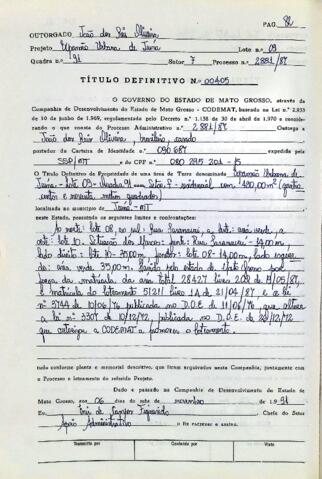 PAG. 82
OUTORGADO João dos Reis Oliveira
Projeto Expansão Urbana de Juína Lote n.o 09
Quadra n.o 91 Setor 7 Processo n.o 2881/87
TÍTULO DEFINITIVO N.o 00405
O GOVERNO DO ESTADO DE MATO GROSSO, através da
Companhia de Desenvolvimento do Estado de Mato Grosso - CODEMAT, baseado na Lei n.o 2.933
10 de junho de 1969, regulamentada pelo Decreto n.o 1.138 de 30 de abril de 1970 e conside-
rando o que consta do Processo Administrativo n.o 2881/87 Outorga a
João dos Reis Oliveira, brasileiro, casado
portador da Carteira de Identidade n.o 090687
SSP/MT e do CPF n.o 080 295 201 - 15
O Título Definitivo de Propriedade de uma área de Terra denominada Expansão Urbana de
Juína - lote 09 - Quadra 91 - Setor 7 - residencial com 490,00 m²
centos e noventa, metros quadrados)
localizada no município de Juína - MT
neste Estado, possuindo os seguintes limites e confrontações:
Ao norte: lote 08, ao sul: Rua
lote 10. Rua 14,00 m,
lado direito: lote 10 - 35,00m, fundos: lote 08 - 14,00m, lado esquer-
do: área verde 35,00m. pelo estado de Mato Grosso por
força da matrícula da área total 28427 livro 2
e matrícula do loteamento 51211 livro 1A de 21/04/87 e a lei
n.o 3744 de 10/06/76 publicada no D.O.E. de 11/06/76 que altera
a lei n.o 3307 de 10/12/72, publicada no D.O.E. de 22/12/72
que autoriza a CODEMAT a promover o loteamento.
tudo conforme planta e memorial descritivo, que foram arquivados nesta Companhia, juntamente com
o Processo e loteamento do referido Projeto.
Dado e passado na Companhia de Desenvolvimento do Estado de
Mato Grosso, aos 06 dias do mês de novembro de 1991
Eu, de Campos Figueiredo Chefe do Setor
Apoio Administrativo o fiz escrever e assino.
Transcrito por Conferido por Visto